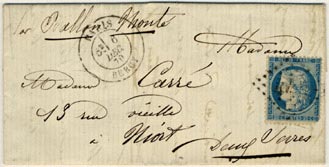 par Ballon Monté
PARIS
DEC
70
BERCY
Madame
Madame Carré
13 rue vieille
à Niort
Deux Sèvres